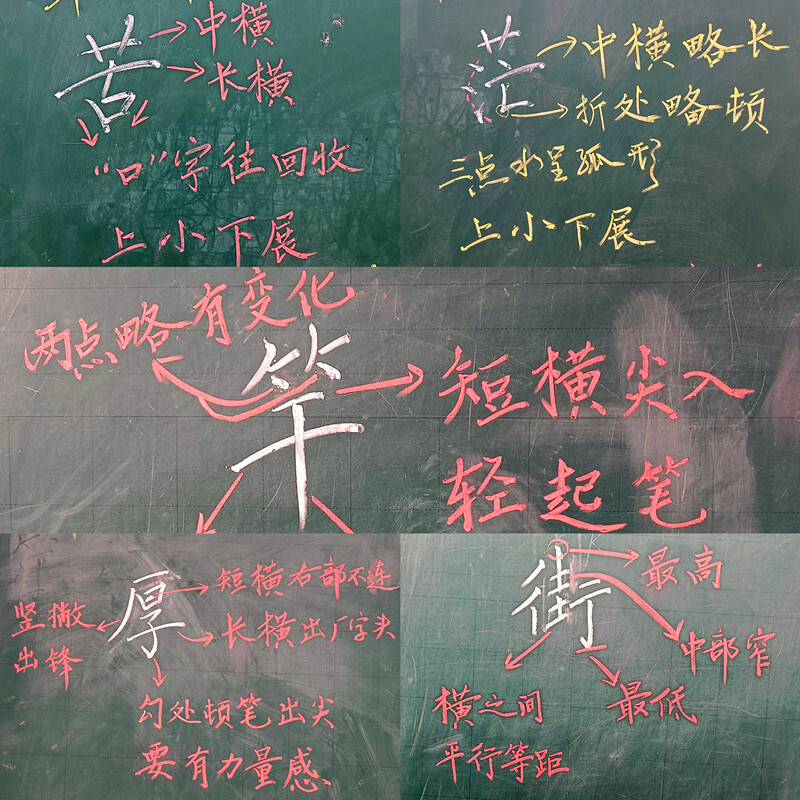 苦
中横
长横
“口”字往回收
上小下展
茫
中横略长
折处略顿
三点水呈弧形
上小下展
两点略有变化
竿
短横尖入
轻起笔
厚
短横右部不连
竖撇
出锋
长横出厂字头
勾处顿笔出尖
要有力量感
街
最高
中部窄
横之间
平行等距
最低